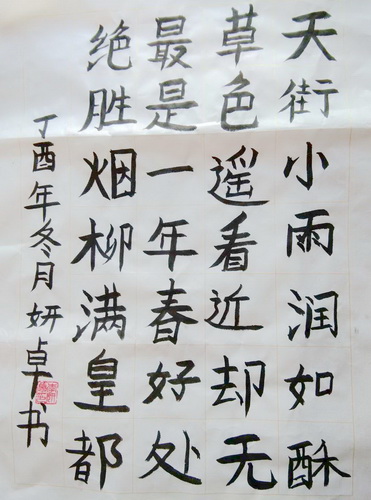 天街小雨润如酥
草色遥看近却无
最是一年春好处
绝胜烟柳满皇都
丁酉年冬月妍卓书